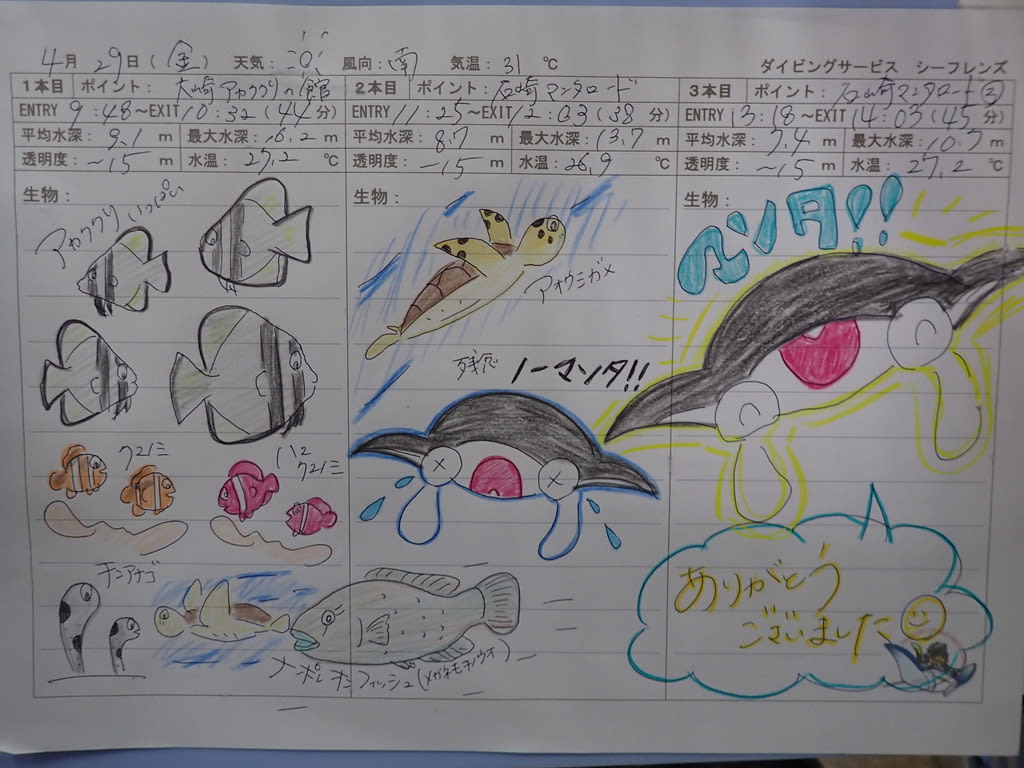 4月29日(金) 天気: 風向:南 気温:31℃
ダイビングサービス シーフレンズ
1本目 ポイント: 大崎アカククリの館
ENTRY 9:48~EXIT 10:32(44分)
平均水深: 9.1 m 最大水深: 16.2 m
透明度: ~15 m 水温: 27.2 ℃
生物:
アカククリ いっぱい
クマノミ
ハマクマノミ
チンアナゴ
2本目 ポイント: 石崎マンタロード
ENTRY 11:25~EXIT 12:03(38分)
平均水深: 8.7 m 最大水深: 13.7 m
透明度: ~15 m 水温: 26.9 ℃
生物:
アオウミガメ
残念 ノーマンタ!!
ナポレオンフィッシュ(メガネモチノウオ)
3本目 ポイント: 石崎マンタロード②
ENTRY 13:18~EXIT 14:03(45分)
平均水深: 7.4 m 最大水深: 10.7 m
透明度: ~15 m 水温: 27.2 ℃
生物:
マンタ!!
ありがとう
ございました